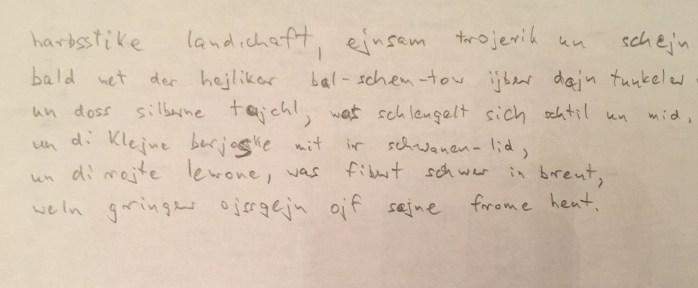 harbsstike landschaft, ejnsam trojerik un schejn
bald wet der hejliker bal-schem-tow ijber dajn tunkeler
un doss silberne tajchl, wos schlengelt sich schtil un mid,
un di klejne berjoske mit ir schwanen-lid,
un di rojte lewone, was fibert schwer in brent,
weln gringer ojssgejn ojf sajne frome hent.